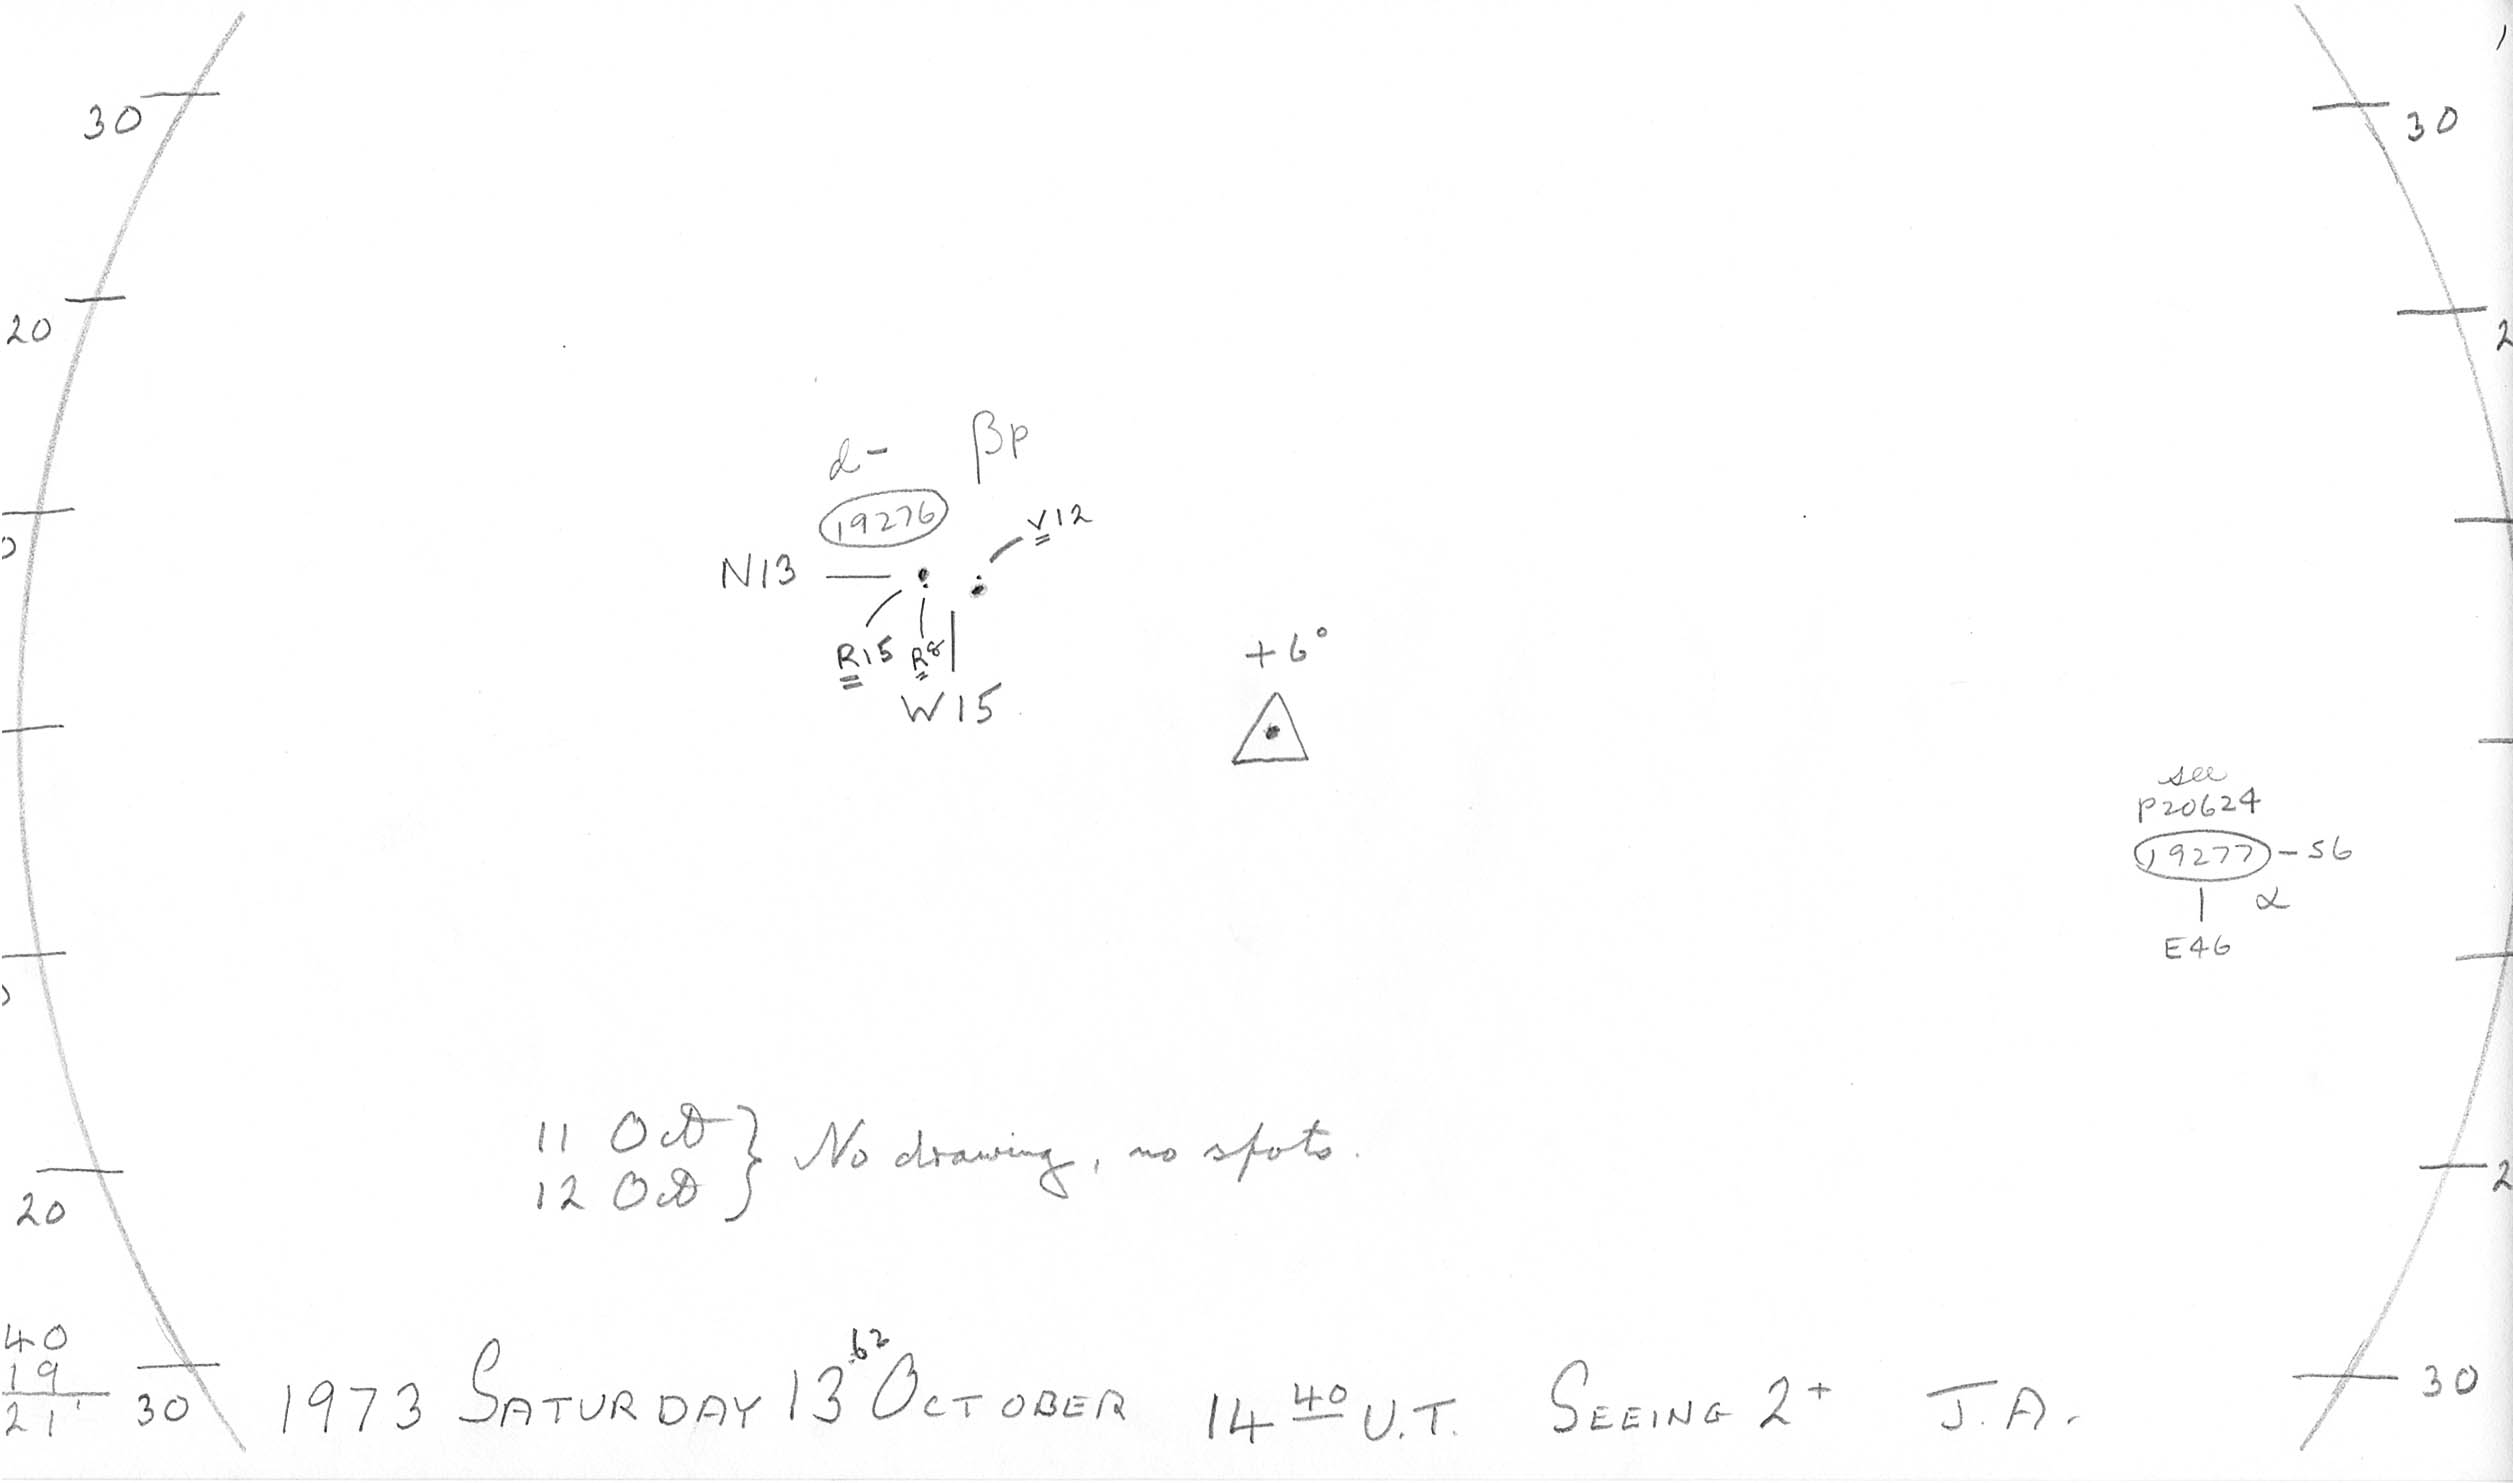 30
30
20
2
α- βp
19276
V12
N13
R15 R8
W15
+6°
see
P20624
19277 - S6
α
E46
11 Oct } No drawing, no spots.
12 Oct
20
2
40
19
21
30
30
1973 SATURDAY 13 62 OCTOBER 14 40 U.T. SEEING 2+ J.A.